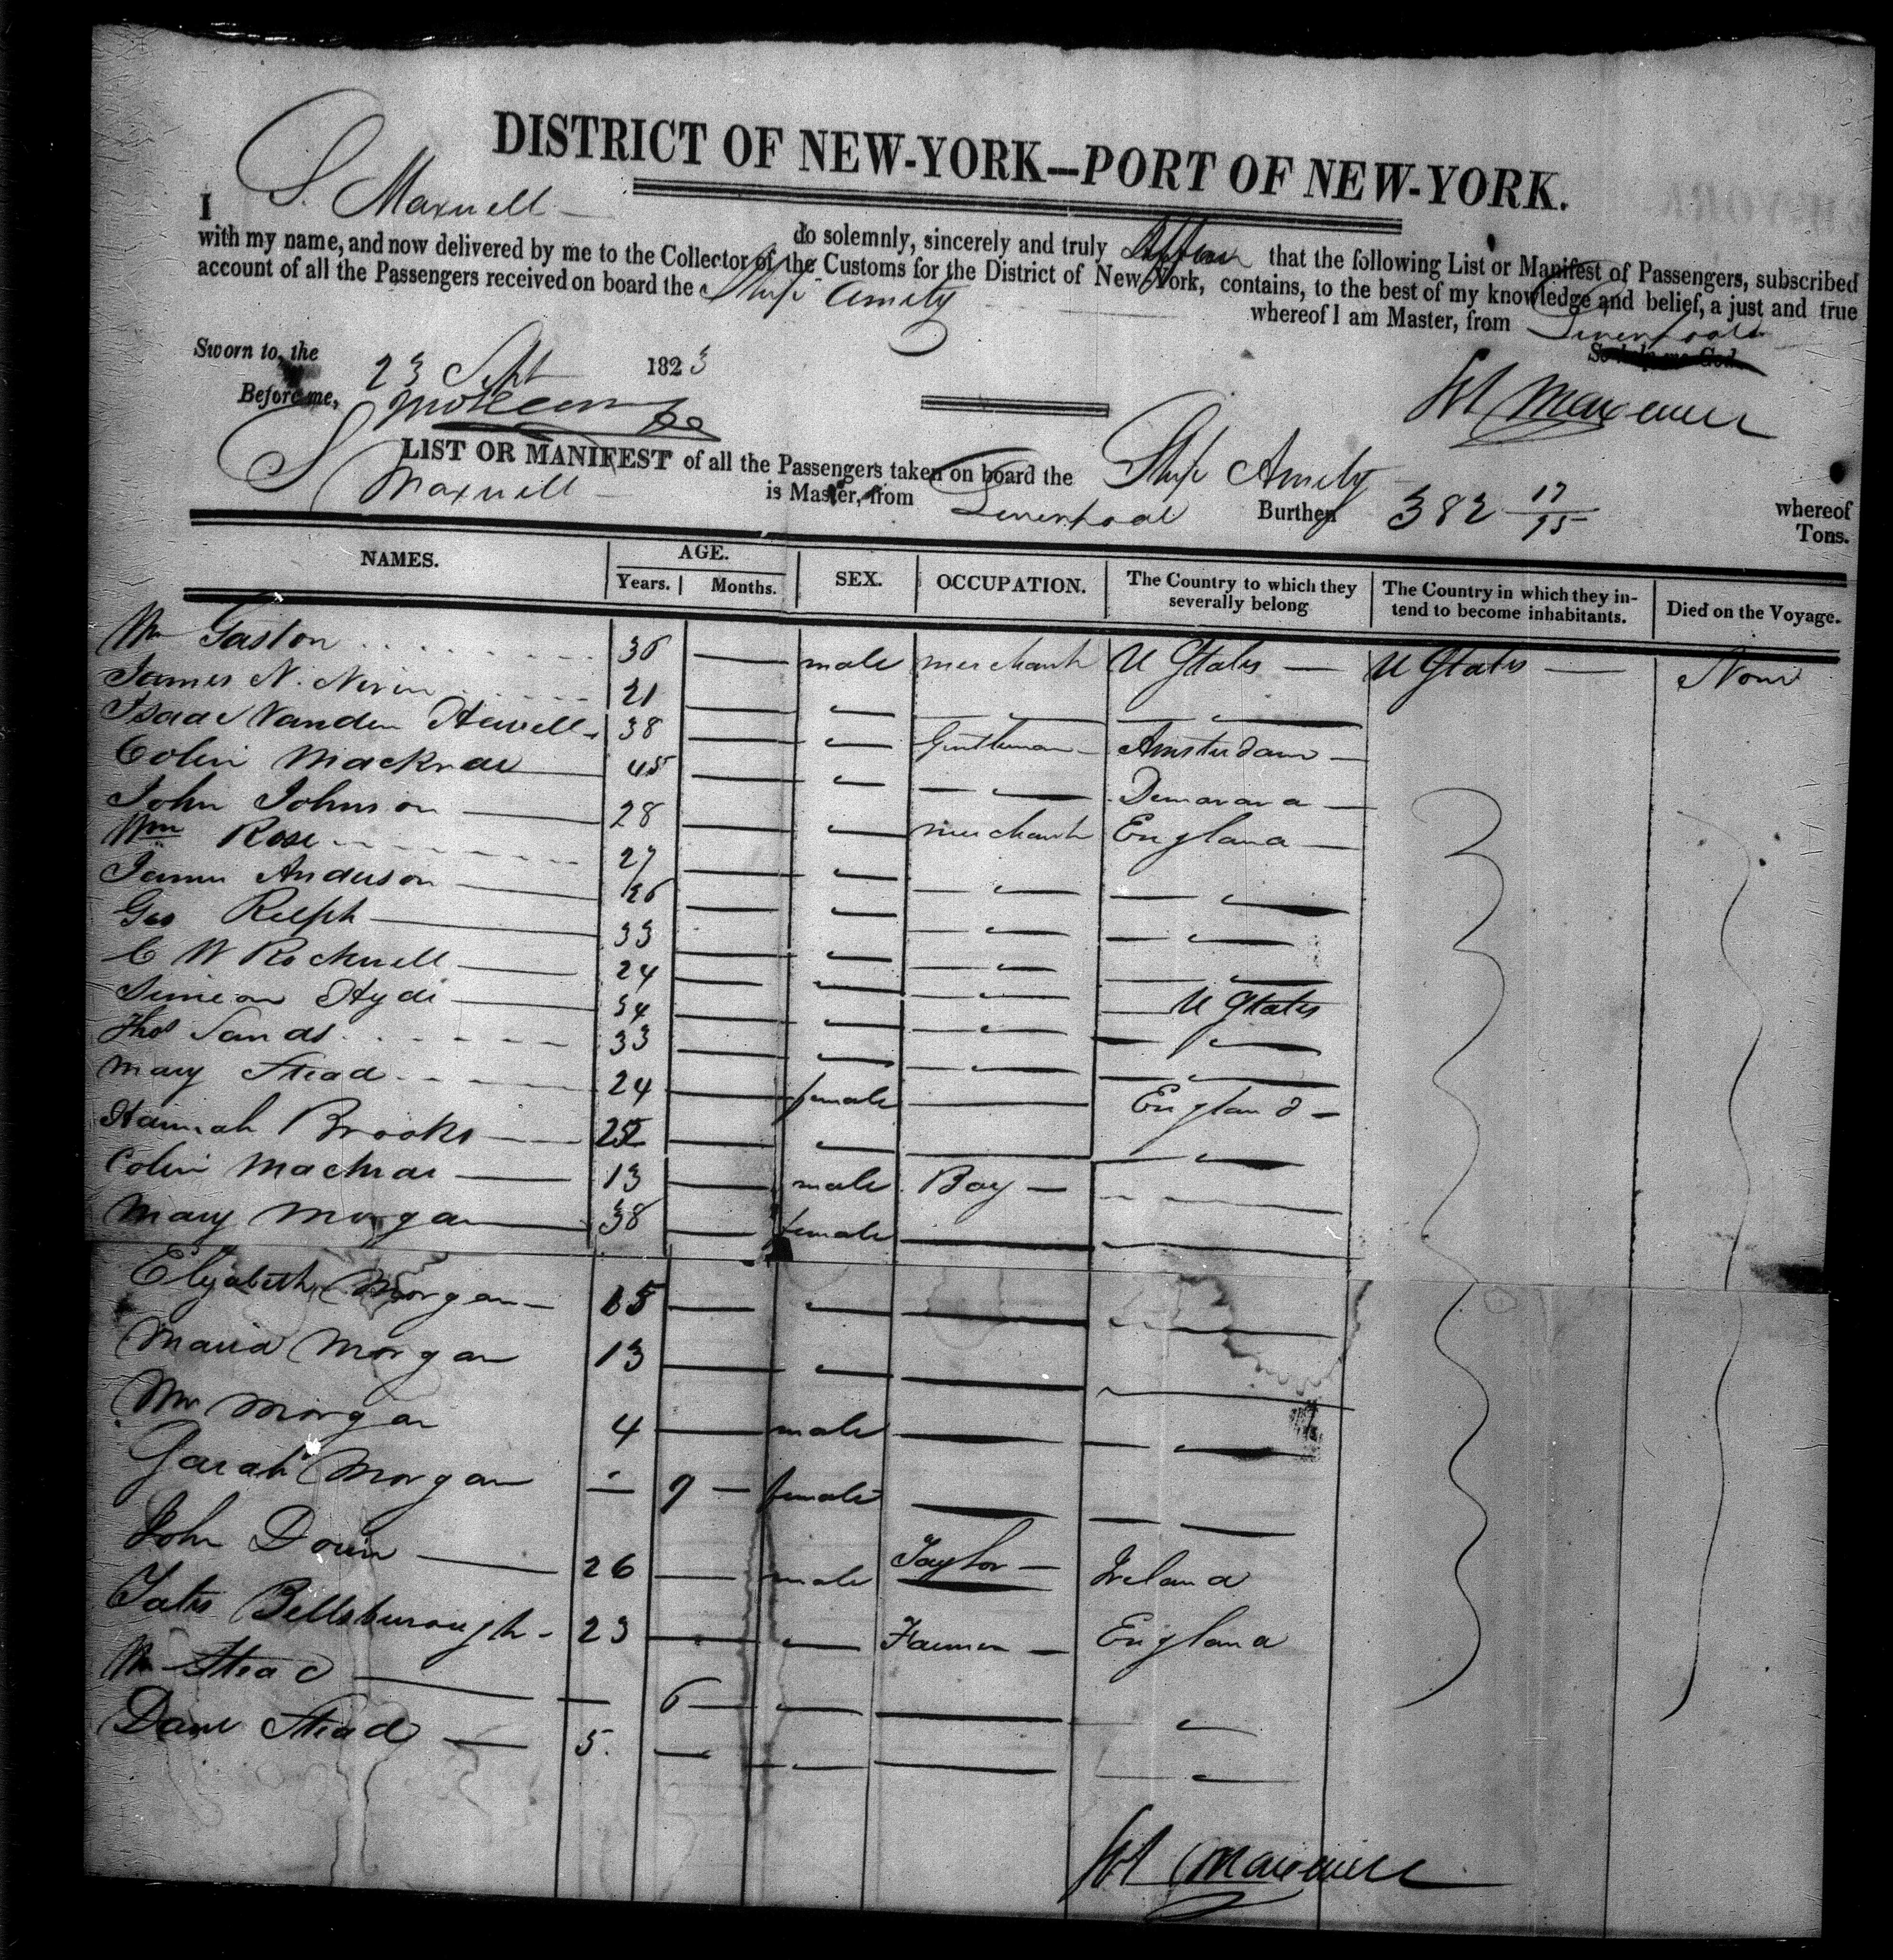 DISTRICT OF NEW-YORK—PORT OF NEW-YORK.
I S. Maxwell do solemnly, sincerely and truly Affirm that the following List or Manifest of Passengers, subscribed
with my name, and now delivered by me to the Collector of the Customs for the District of New York, contains, to the best of my knowledge and belief, a just and true
account of all the Passengers received on board the Ship Amity whereof I am Master, from Liverpool
So help me God.
Sworn to, the 23 Sept 1823
Before me,
Maxwell
LIST OR MANIFEST of all the Passengers taken on board the Ship Amity whereof
S Maxwell is Master, from Liverpool Burthen 382 17/95 Tons.
NAMES. AGE. SEX. OCCUPATION. The Country to which they severally belong The Country in which they intend to become inhabitants. Died on the Voyage.
Years. Months.
Wm Gaston 36 — male merchant U States — U States — None
James N. Nevin 21 — — — —
Isaac Vanden Heuvell 38 — — Gentleman — Amsterdam —
Colin Mackrae 45 — — — Demarara —
John Johnson 28 — — merchant England —
Wm Rose 27 — — — —
James Anderson 26 — — — —
Geo Relph 33 — — — —
C W Rockwell 24 — — — U States
Simeon Hyde 34 — — — —
Thos Sands 33 — — — —
Mary Stead 24 — female — England —
Hannah Brooks 22 — — — —
Colin Mackrae 13 — male Boy — —
Mary Morgan 38 — female — —
Elizabeth Morgan 15 — — — —
Maria Morgan 13 — — — —
Wm Morgan 4 — male — —
Sarah Morgan — 9 — female — —
John Dorin 26 — male Taylor — Ireland
Bellsburough 23 — — Farmer — England
Wm Stead — 6 — — — —
Stead 5. — — — —
Maxwell